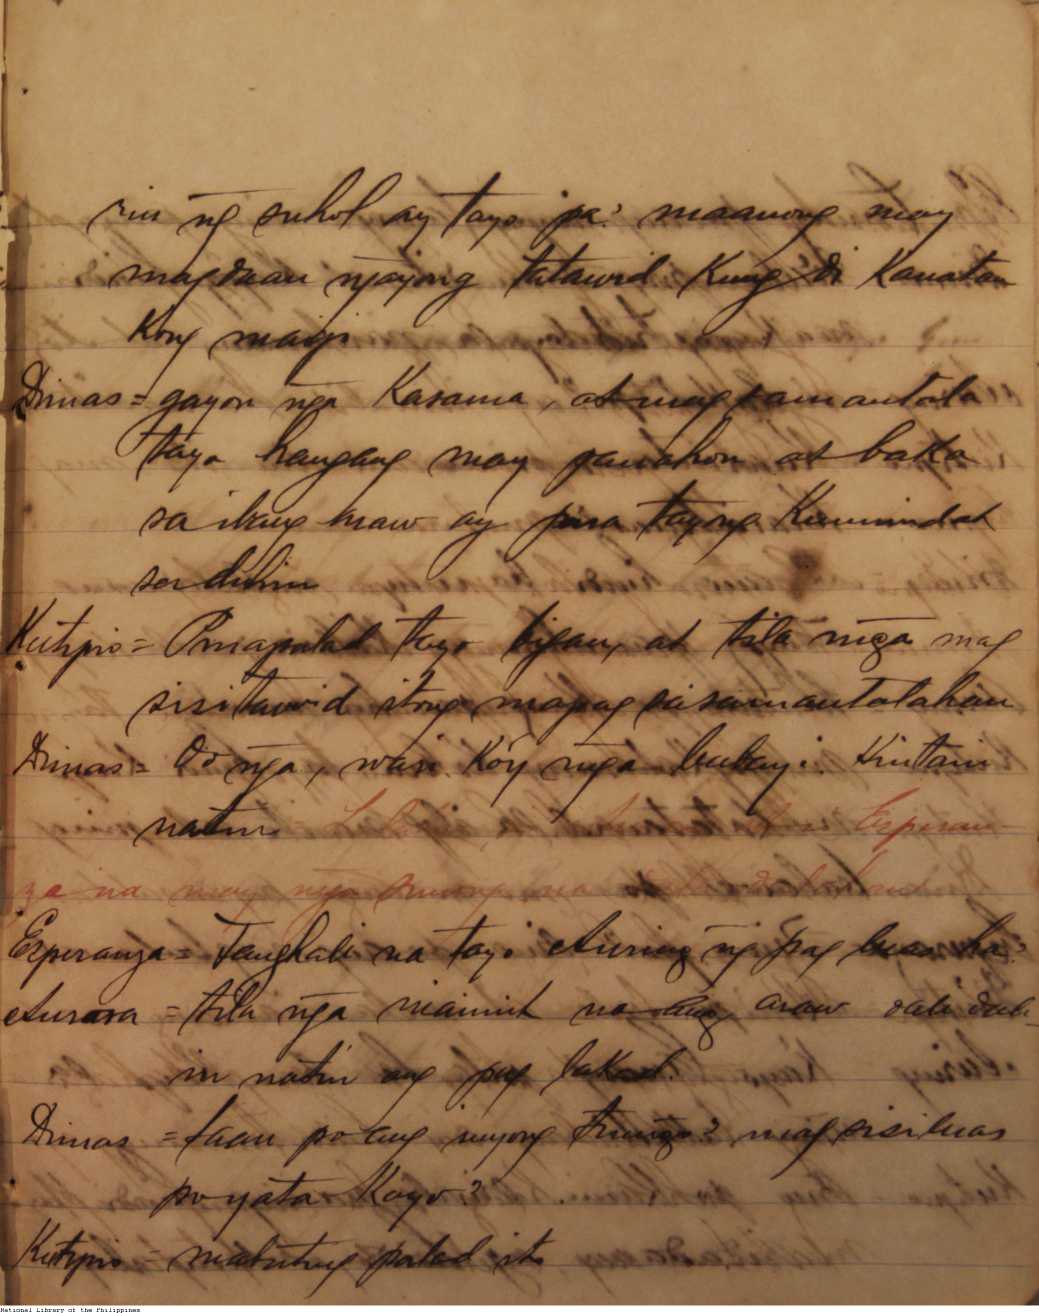 rin ng suhol ay tayo pa? maanong may
magdaan ngayong tatawid Kung di Kauatan
Kong maigi
Dimas = gayon nga Kasama, at mag samantala
tayo hangang may panahon at baka
sa ibang araw ay pisa tayong Kumindat
sa dilim
Kutipio = Mapalad tayo bigan, at tila mga mag
sisitawid itong mapag sasamantalahan
Dimas = Oo nga, wari Koy mga babayi. Hintain
natin. Esperan
za na may mga
Esperanza = Tanghali na tayo Auring ng pag luas ha?
Aurora = tila nga mainit na ang araw dali dali
in natin ang pag lakad.
Dimas = saan po ang inyong tungo? mag sisiluas
po yata Kayo?
Kutipio = mabuting palad ito
National Library of the Philippines